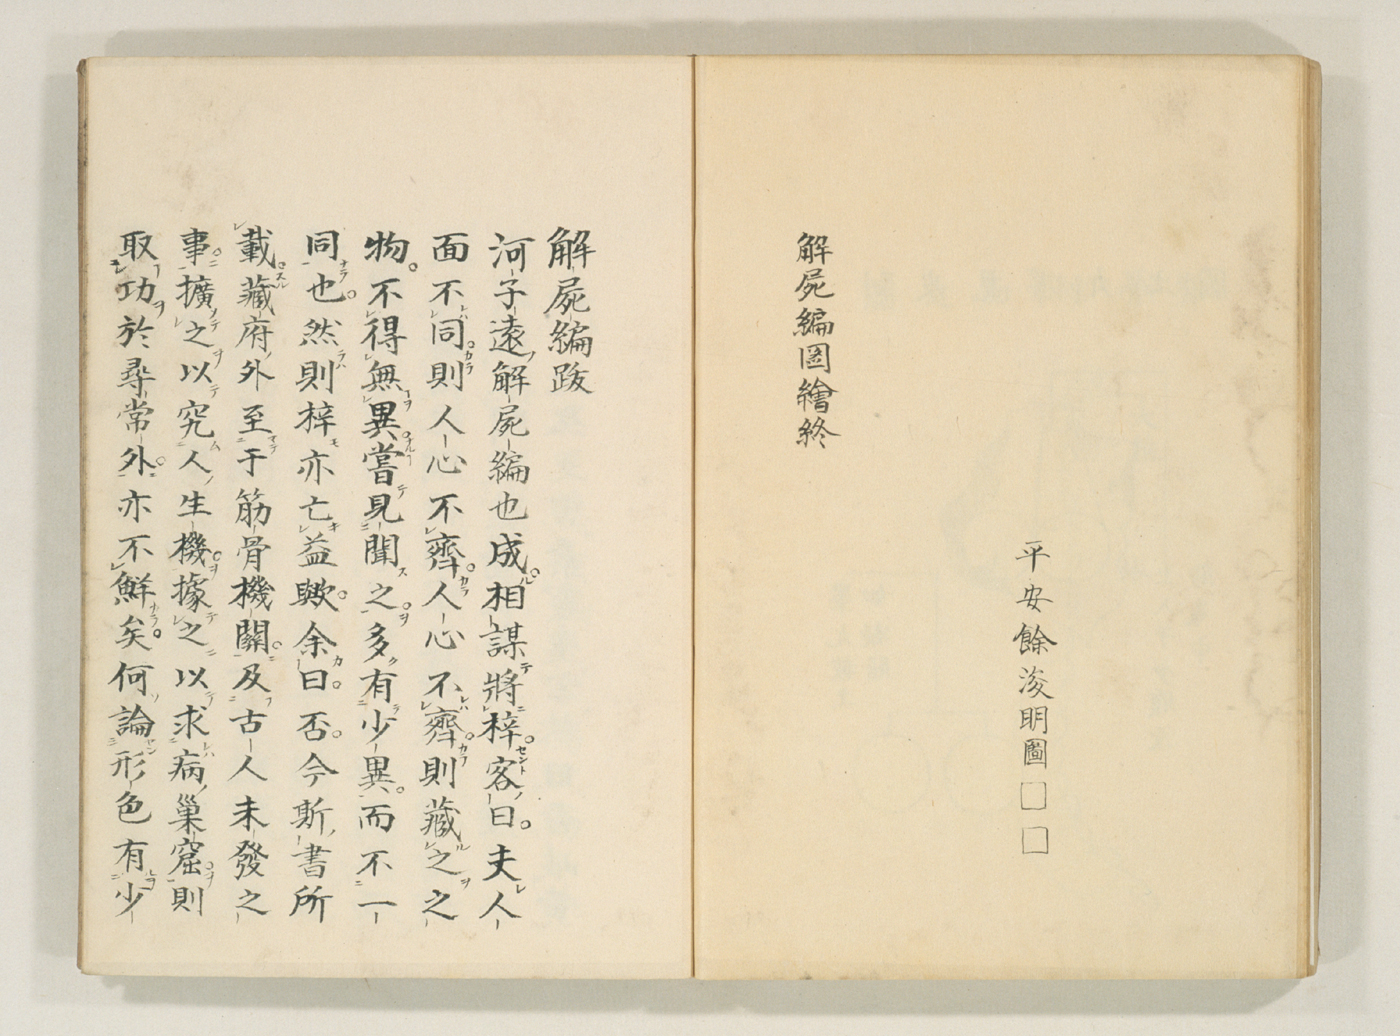 平安餘浚明圖□□
解屍編圖繪終
解屍編跋
河子遠解屍編也成相謀將梓客曰夫人
面不同則人心不齊人心不齊則藏之之
物不得無異嘗見聞之多有少異而不一
同也然則梓亦亡益歟余曰否今斯書所
載藏府外至于筋骨機關及古人未發之
事擴之以究人生機據之以求病巢窟則
取功於尋常外亦不鮮矣何論形色有少